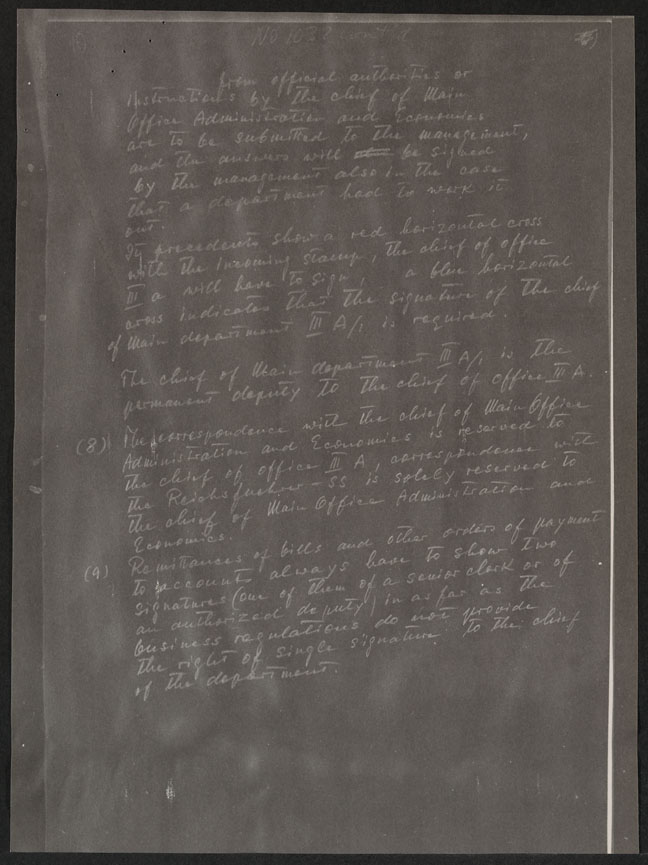 No 1032 cont'd
from official authorities or
instructions by the chief of Main
Office Administration and Economics
are to be submitted to the management,
and the answers will be signed
by the management also in the case
that a department had to work it
out.
If precedents show a red horizontal cross
with the incoming stamp, the chief of office
III a will have to sign, a blue horizontal
cross indicates that the signature of the chief
of Main department III A/1 is required.
The chief of Main department III A/1 is the
permanent deputy to the chief of office III A.
(8) The correspondence with the chief of Main Office
Administration and Economics is reserved to
the chief of office III A, correspondence with
the Reichsfuehrer-SS is solely reserved to
the chief of Main Office Administration and
Economics.
(9) Remittances of bills and other orders of payment
to account always have to show two
signatures (one of them of a senior clerk or of
an authorized deputy) in as far as the
business regulations do not provide
the right of single signature to the chief
of the department.